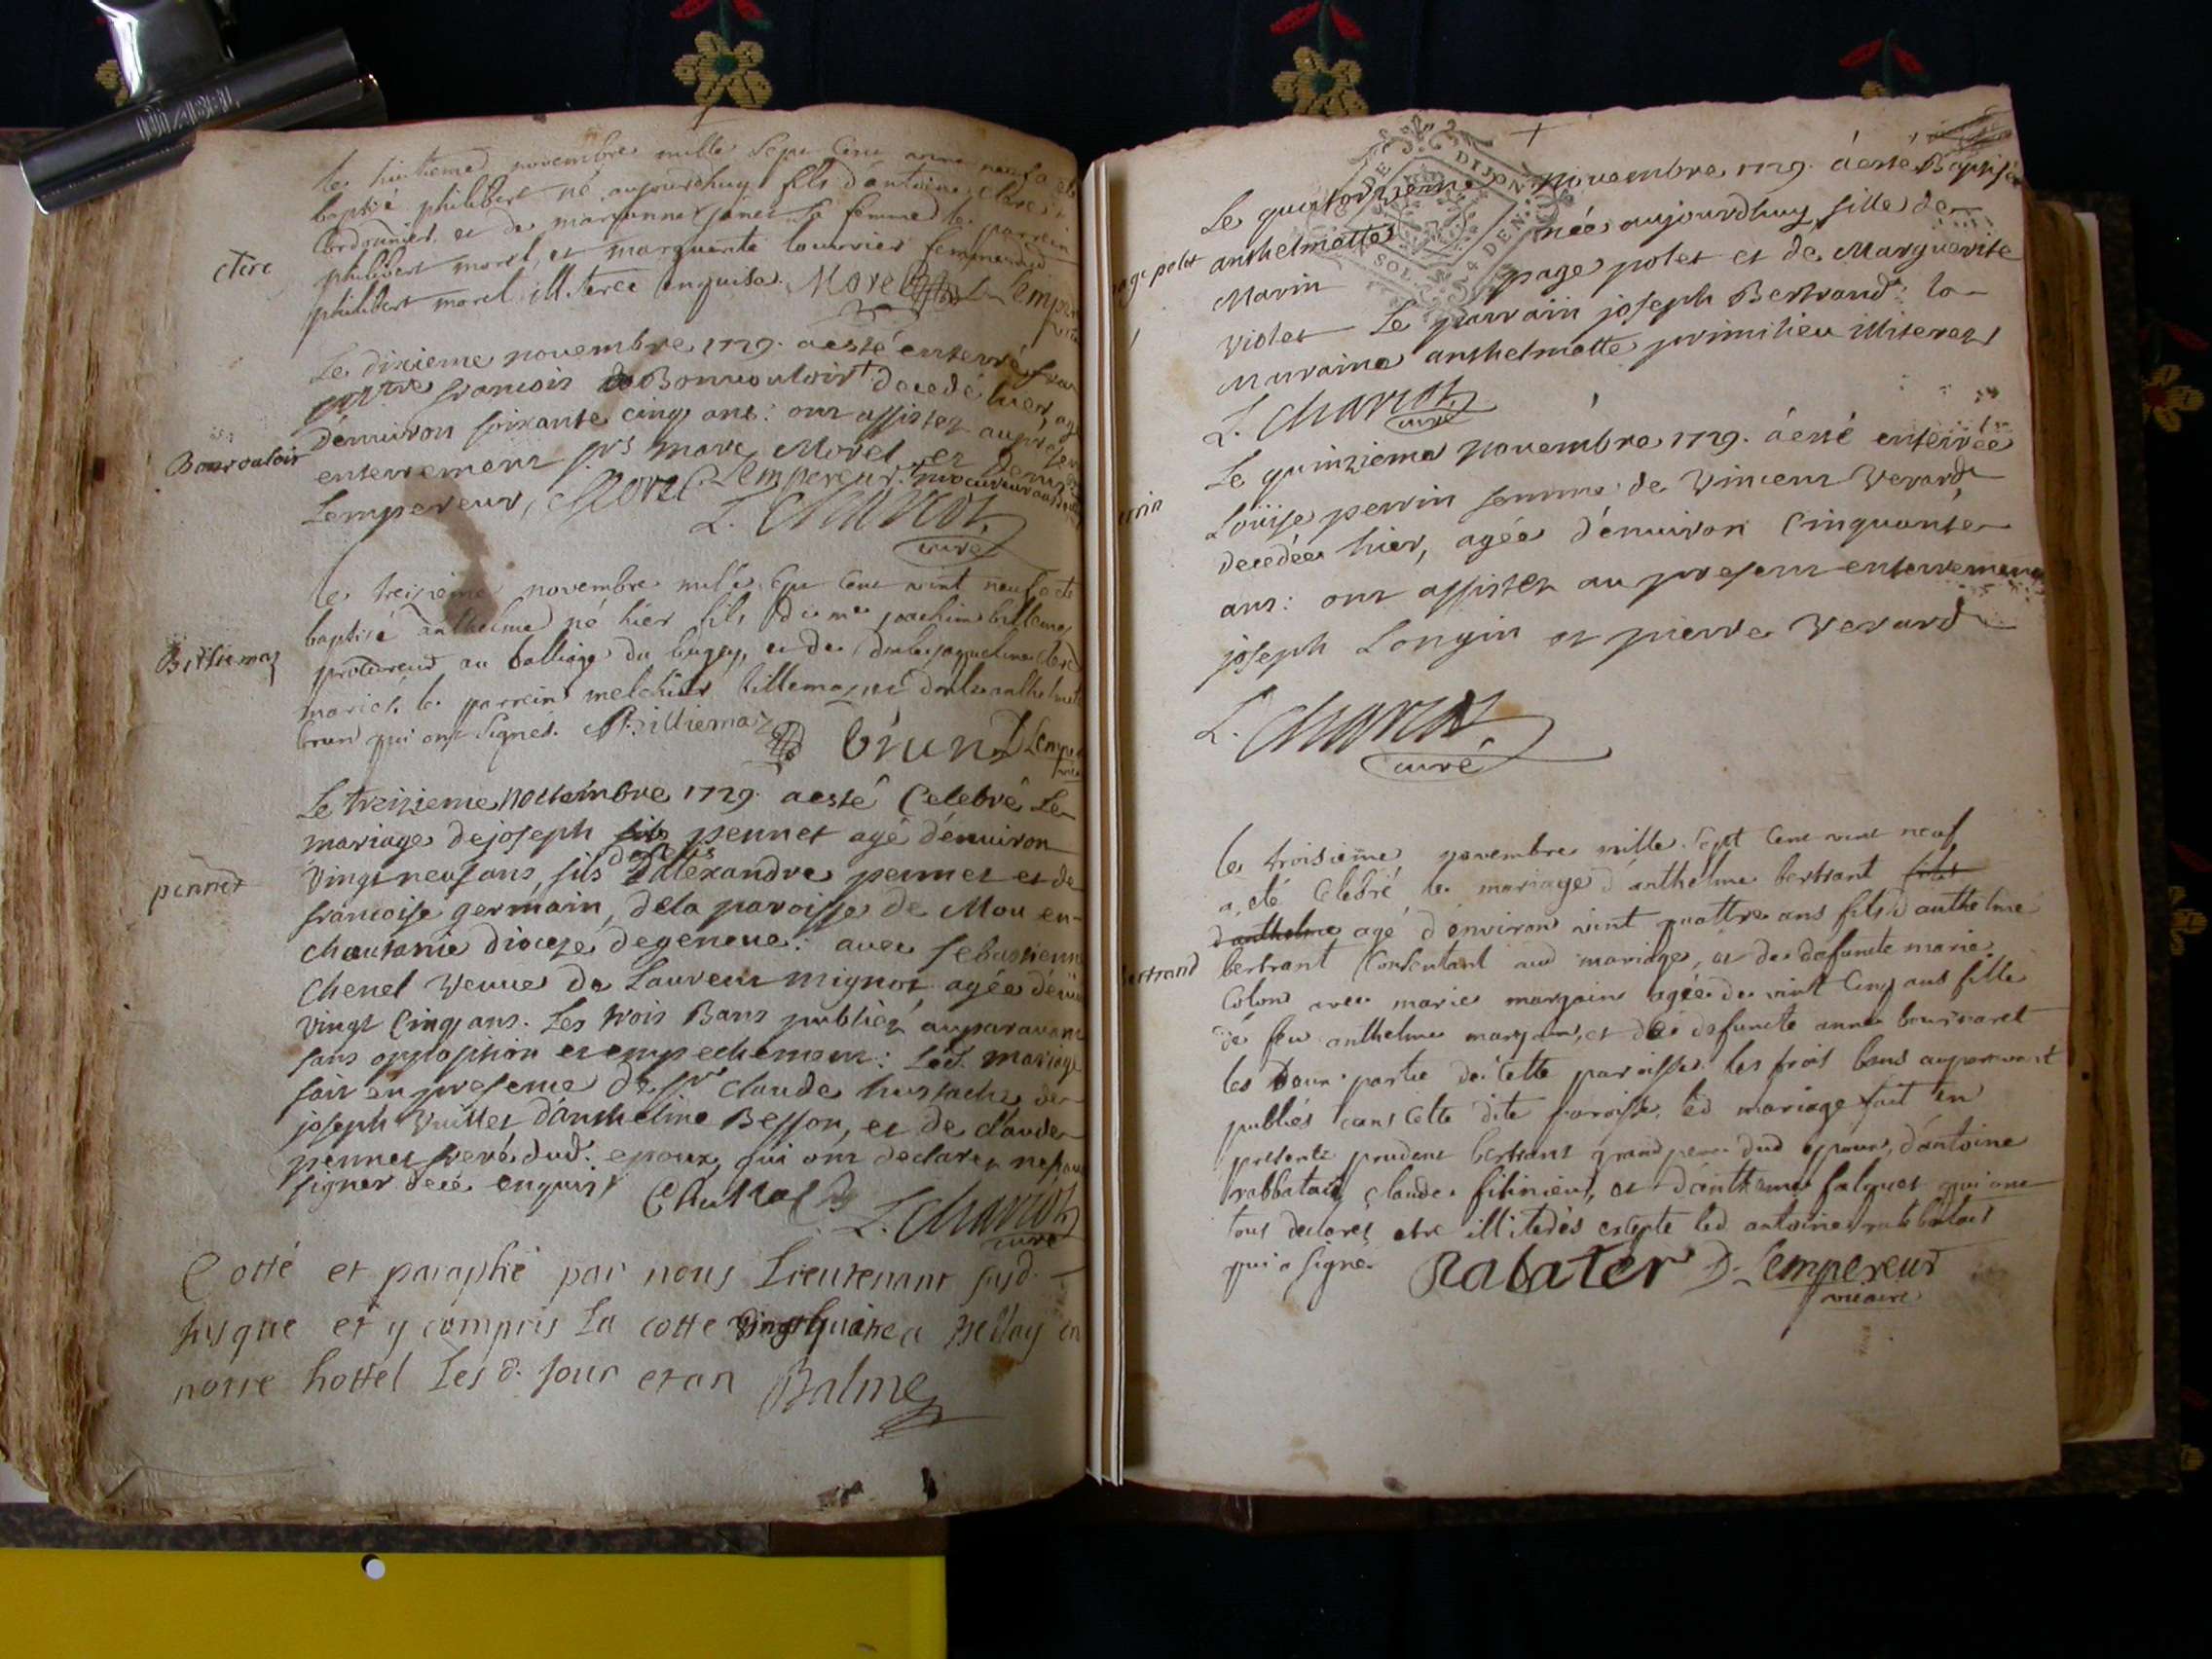 le huitieme novembre mille sept cent
baptisé philibert né aujourdhuy fils d'antoine clere
Cordonnier, et de marianne janet sa femme le parrein
philibert morel, et marguerite
philibert morel illiterée enquise. Morel
clere
Le dixieme novembre 1729. a esté enterré
francois Bonvouloir decedé hier, agé
d'enuiron soixante cinq ans: ont assistez au
enterrement srs marc Morel et
Lempereur, Morel Lempereur
Bonvouloir
L. Charcot
curé
le treizieme novembre mille sept cent vint neuf a eté
baptisé anthelme né hier fils de me joachim billiema
procureur au balliage du bugey, et de
mariés. le parrein melchior billiemaz, et
brun qui ont signés. Billiemaz Brun
Billiemaz
Le treizieme novembre 1729. a esté Celebré Le
mariage de joseph pennet agé d'enuiron
deffs
vingt neuf ans, fils d'Alexandre pennet et de
francoise germain, de la paroisse de Mou en
chautanie dioceze de geneve: avec sebastienne
Chenel veuve de Laurens mignot agée d'enui
vingt Cinq ans. Les trois Bans publiez auparavant
sans opposition et empechement: Led. mariage
fait en presence de sr claude hustache de
joseph vuillet d'anthelme Besson, et de claude
pennet frere dud. epoux, qui ont declarez ne
signer de ce enquis
pennet
L. Charcot
curé
Cotté et paraphé par nous Lieutenant susd.
jusque et y compris La cotte vingt quatre a Bellay en
notre hottel Les d. jour et an Balme
DE DIJON
SOL. 4 DEN.
Le quatorzieme novembre 1729. a esté Baptisée
anthelmette née aujourdhuy fille de
Marin page polet et de Marguerite
violet Le parrain joseph Bertrand la
Marraine anthelmette primilieu illiterez
page polet
L. Charcot
curé
Le quinzieme novembre 1729. a esté enterrée
Loüise perrin femme de Vincent Verard
decedée hier, agée d'enuiron Cinquante
ans: ont assistez au present enterrement
joseph Longin et pierre Verard
L. Charcot
curé
le troisieme novembre mille sept cent vint neuf
a, eté Celébré le mariage d'anthelme bertrant fils
d'anthelme agé d'environ vint quattre ans fils d'anthelme
bertrant Consentant aud mariage, et de defuncte marie
Colon avec marie marjain agée de vint Cinq ans fille
de feu anthelme marjain, et de defuncte anne
les Deux partie de Cette paroisse les trois bans auparavant
publiés dans Cette dite paroisse, led mariage fait en
presence prudent bertrant grand pere dud epoux, d'antoine
rabbatais, claude, et d'anthelme falquet qui ont
tous declarés etre illiterés excepte led antoine
qui a signé. Rabater D. Lempereur
vicaire
Bertrand